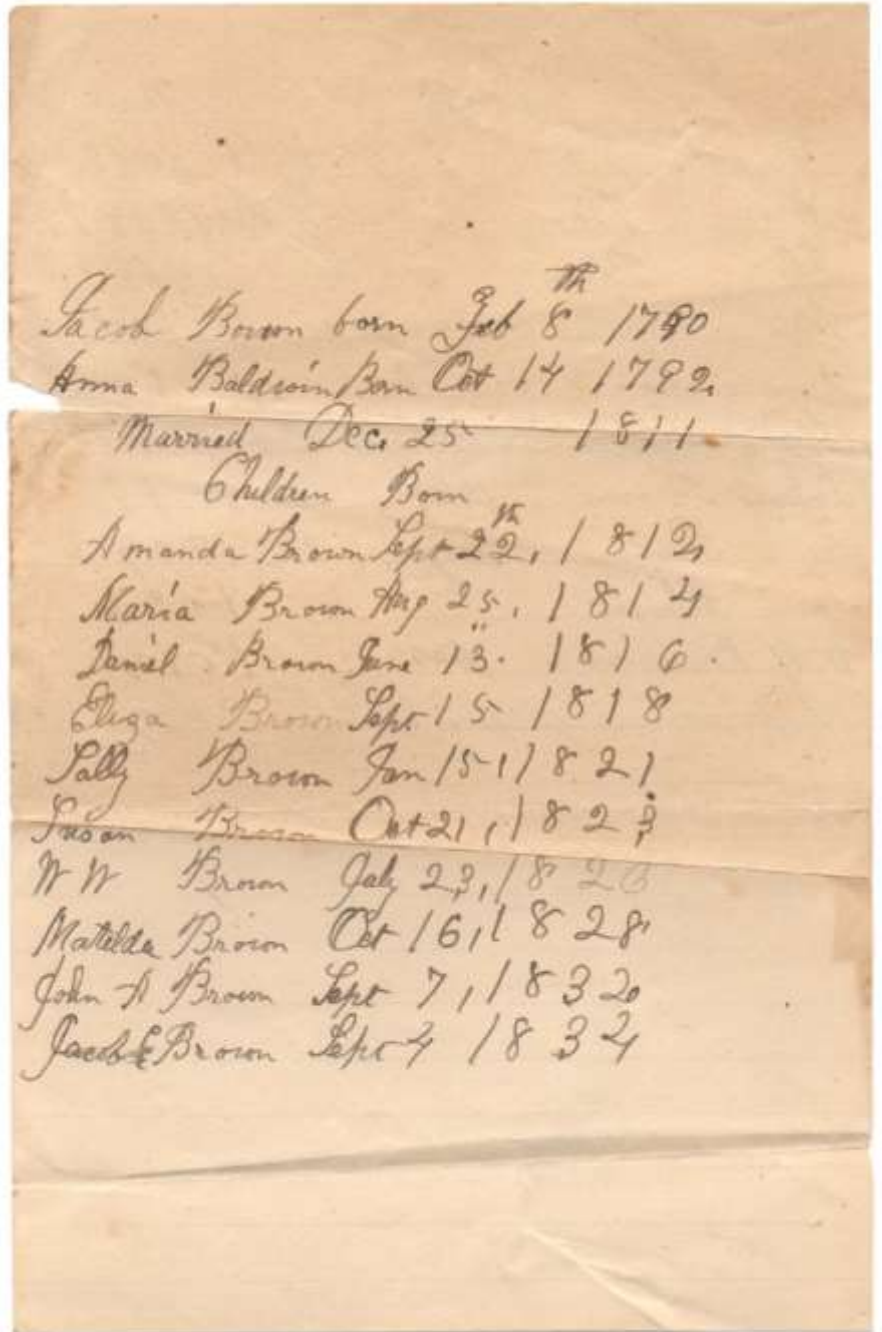 Jacob Brown born Feb 8th 1790
Anna Baldwin Born Oct 14 1792.
Married Dec. 25 1811
Children Born
Amanda Brown Sept 22th, 1812,
Maria Brown Aug 25, 1814
Daniel Brown June 13. 1816.
Eliza Brown Sept. 15 1818
Sally Brown Jan 15, 1821
Susan Brown Oct 21, 1823
W W Brown July 23, 1826
Matilda Brown Oct 16, 1828
John A Brown Sept 7, 1832
Jacob E Brown Sept 4 1834